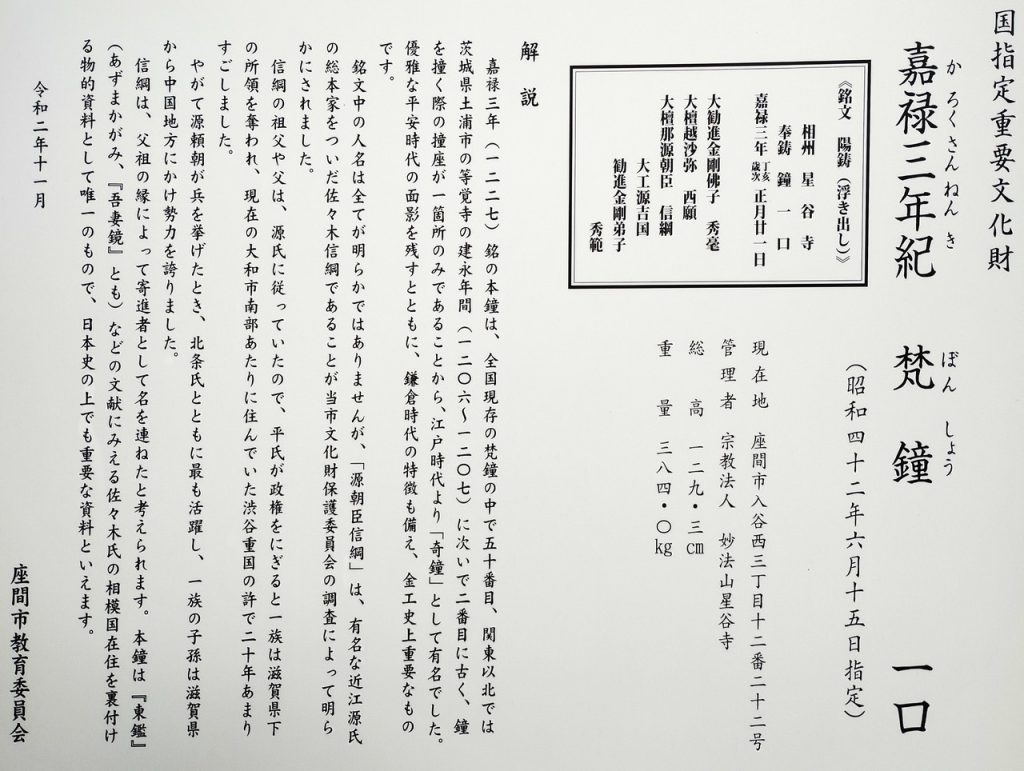 国指定重要文化財
嘉禄三年紀 梵鐘 一口
かろくさんねんき ぼんしょう
(昭和四十二年六月十五日指定)
《銘文 陽鋳(浮き出し)》
相州 星谷寺
奉鋳 鐘一口
嘉禄三年 歳次丁亥 正月廿一日
大勧進金剛佛子 秀毫
大檀越沙弥 西願
大檀那源朝臣 信綱
大工源吉国
勧進金剛弟子
秀範
現在地 座間市入谷西三丁目十二番二十二号
管理者 宗教法人 妙法山星谷寺
総高 一二九・三cm
重量 三八四・〇kg
解説
嘉禄三年(一二二七)銘の本鐘は、全国現存の梵鐘の中で五十番目、関東以北では
茨城県土浦市の等覚寺の建永年間(一二〇六〜一二〇七)に次いで二番目に古く、鐘
を撞く際の撞座が一箇所のみであることから、江戸時代より「奇鐘」として有名でした。
優雅な平安時代の面影を残すとともに、鎌倉時代の特徴も備え、金工史上重要なもの
です。
銘文中の人名は全てが明らかではありませんが、「源朝臣信綱」は、有名な近江源氏
の総本家をついだ佐々木信綱であることが当市文化財保護委員会の調査によって明ら
かにされました。
信綱の祖父や父は、源氏に従っていたので、平氏が政権をにぎると一族は滋賀県下
の所領を奪われ、現在の大和市南部あたりに住んでいた渋谷重国の許で二十年あまり
すごしました。
やがて源頼朝が兵を挙げたとき、北条氏とともに最も活躍し、一族の子孫は滋賀県
から中国地方にかけ勢力を誇りました。
信綱は、父祖の縁によって寄進者として名を連ねたと考えられます。本鐘は『東鑑』
(あずまかがみ、『吾妻鏡』とも)などの文献にみえる佐々木氏の相模国在住を裏付け
る物的資料として唯一のもので、日本史の上でも重要な資料といえます。
令和二年十一月
座間市教育委員会